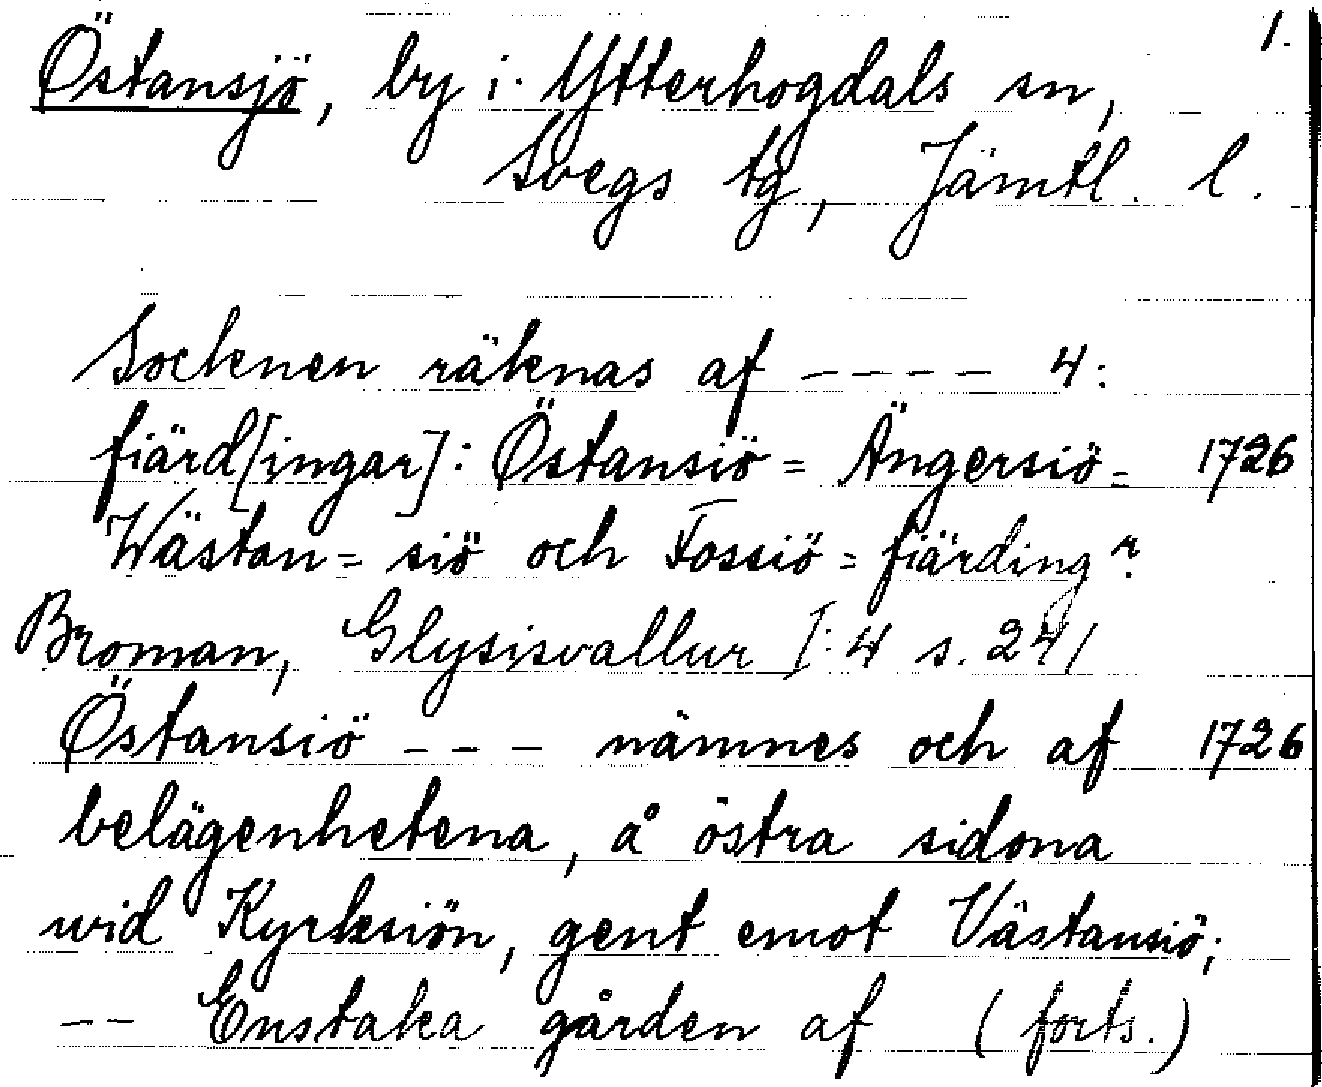 1.
Östansjö, by i Ytterhogdals sn,
Svegs tg, Jämtl. l.
Socknen räknas af ---- 4:
fiärd[ingar]: Östansiö= Ängersiö= 1726
Wästan= siö och Fossiö= fiärdingr.
Broman, Glysisvallur I:4 s. 241
Östansiö --- nämnes och af 1726
belägenhetena, å östra sidona
wid Kyrksiön, gent emot Västansiö;
-- Enstaka gården af (forts.)